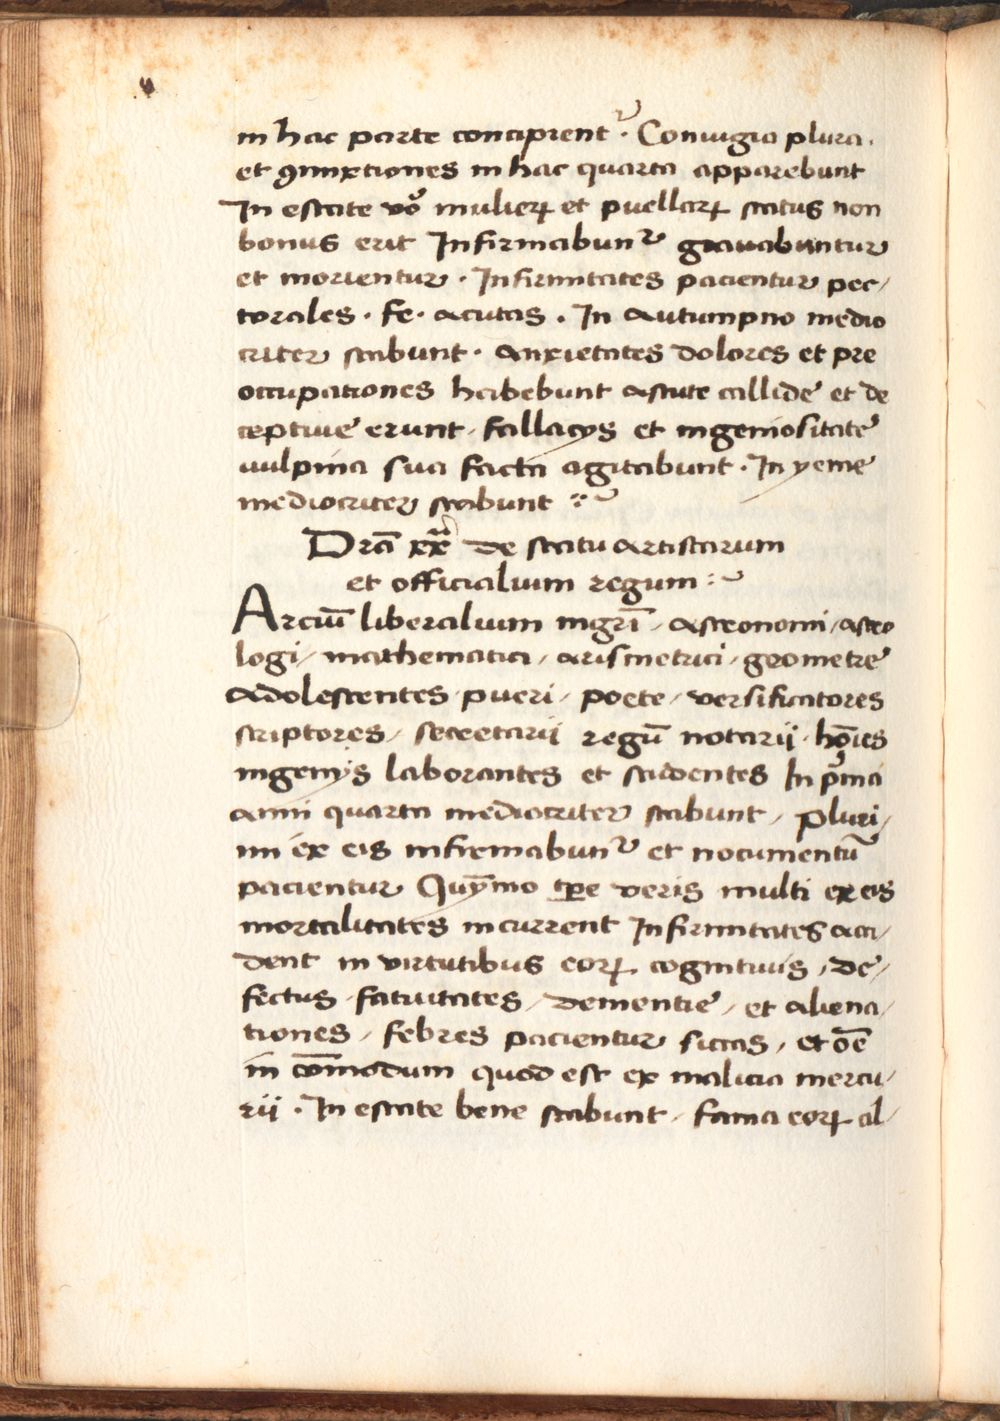 in hac parte concipient᷑ · Conuigia plura ·
et ꝯiunxtiones in hac quarta apparebunt
In estate vo᷑ mulieꝝ et puellaꝝ status non
bonus erit Infirmabunt᷑ grauabuntur
et morientur · Infirmitates pacientur pec/
torales · fe · acutas · In autumpno medio
criter stabunt · anxietates dolores et pre
occupationes habebunt astute callide et de
ceptiue erunt · fallacijs et ingeniositate
uulpina sua facta agitabunt · In yeme
mediocriter stabunt :~
Dr̄a xxᵃ de statu artistarum
et officialium regum :~
Arciū liberalium mgr̄i / astronomi / astro
logi / mathematici / arismetrici / geometre
adolescentes · pueri / poete / versificatores
scriptores / secretarii regū notarii · hōies
ingenijs laborantes et studentes In pͥma
anni quarta mediocriter stabunt / pluri/
mi ex eis infirmabunt᷑ et nocumentū
pacientur Quȳmo tꝑe veris multi ex eis
mortalitates incurrent Infirmitates acci/
dent in virtutibus eoꝝ cognitiuis / de/
fectus · fatuitates / dementie / et aliena/
tiones / febres pacientur siccas / et oē
in cōmodum quod est ex malicia mercu/
rii · In estate bene stabunt / fama eoꝝ al/